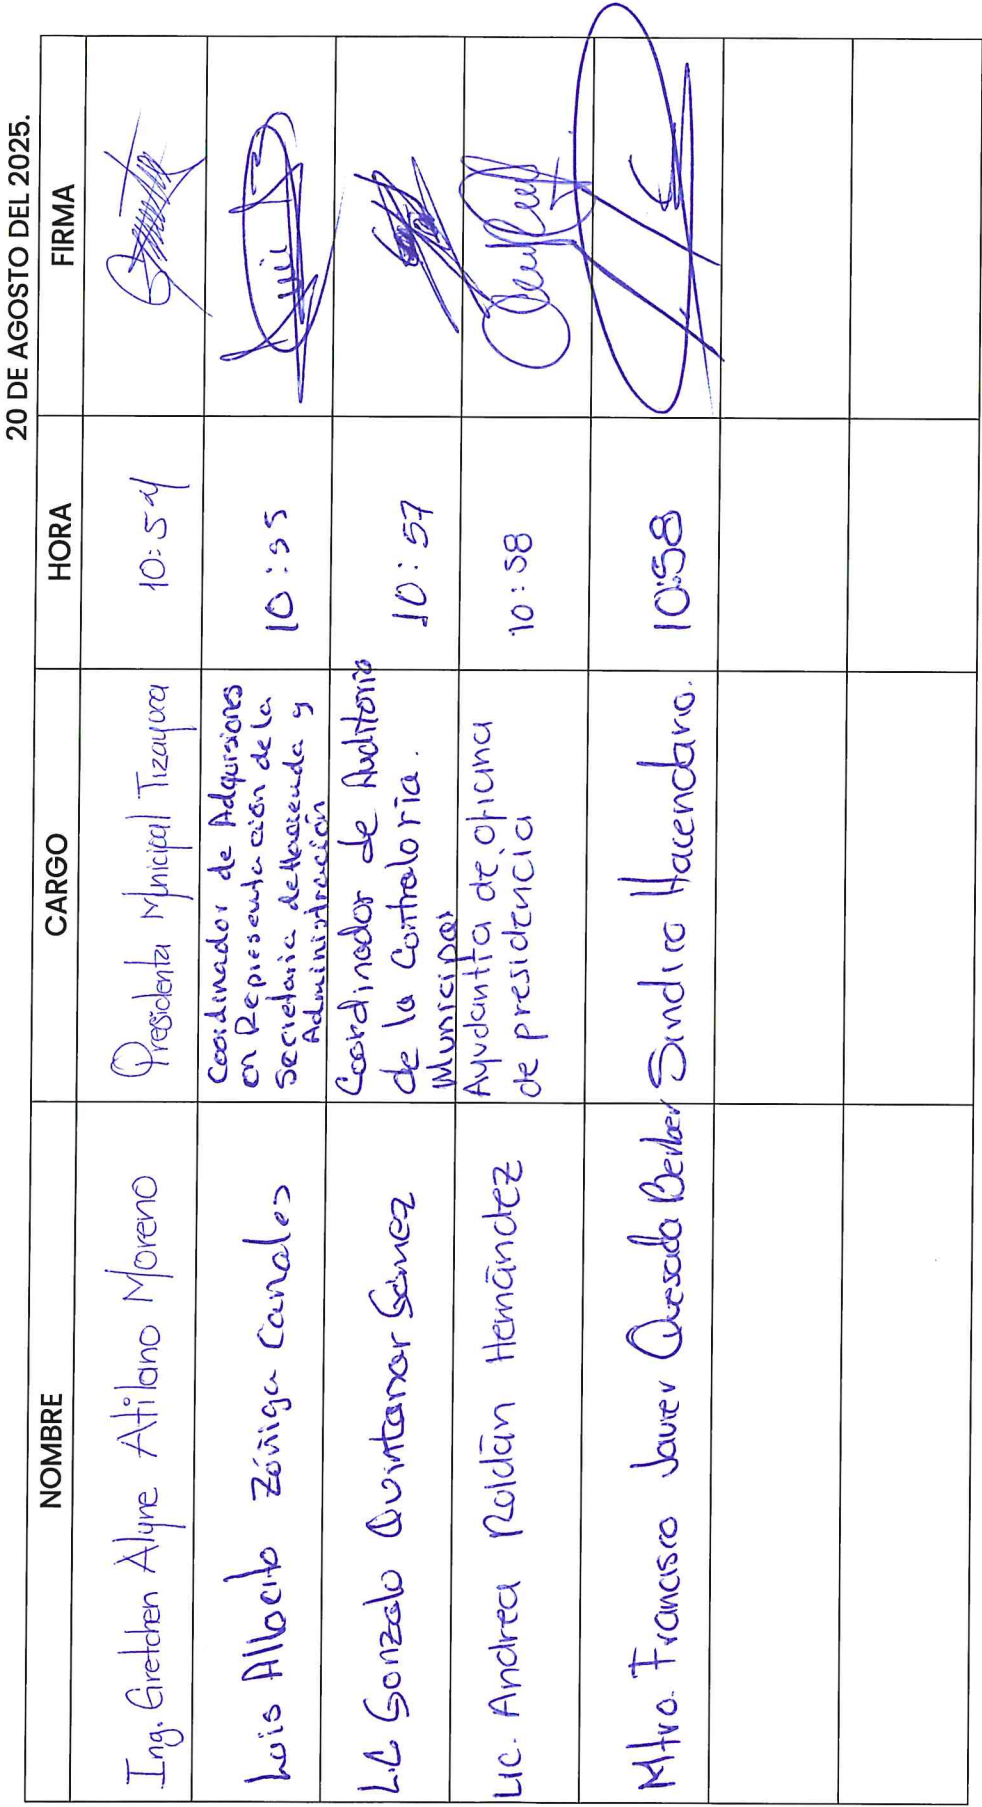 20 DE AGOSTO DEL 2025.
NOMBRE CARGO HORA FIRMA
Ing. Gretchen Alyne Atilano Moreno Presidenta Municipal Tizayuca 10:54
Luis Alberto Zúñiga Canales
Coordinador de Adquisiones
en Representación de la
Secretaria de Hacienda y
Administración
10:55
L.C Gonzalo Quintanar Gómez
Coordinador de Auditoria
de la Contraloría.
Municipal
10:57
Lic. Andrea Roldán Hernández
Ayudantía de oficina
de presidencia
10:58
Mtro. Francisco Javier Quesada Berber Sindico Hacendario. 10:58